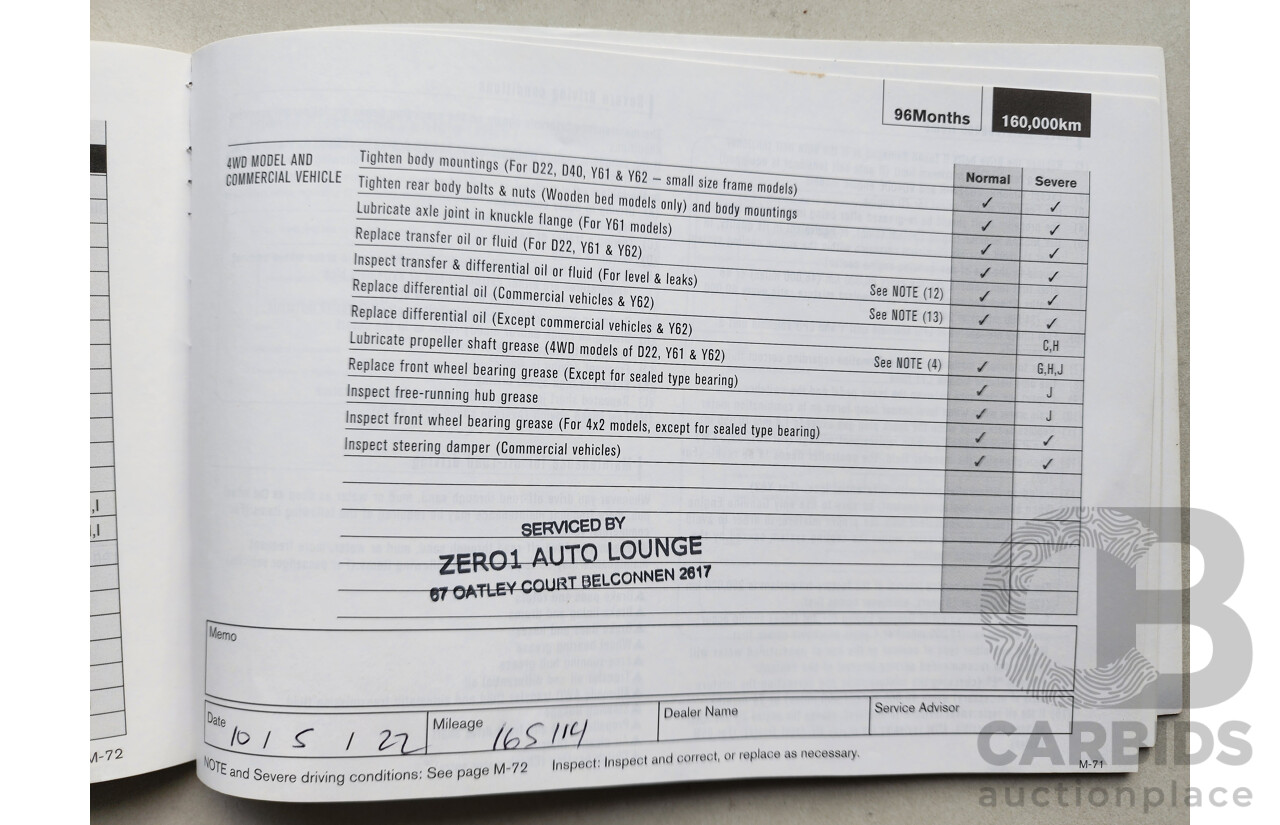 96Months 160,000km
4WD MODEL AND
COMMERCIAL VEHICLE
Normal Severe
Tighten body mountings (For D22, D40, Y61 & Y62 – small size frame models) ✓ ✓
Tighten rear body bolts & nuts (Wooden bed models only) and body mountings ✓ ✓
Lubricate axle joint in knuckle flange (For Y61 models) ✓ ✓
Replace transfer oil or fluid (For D22, Y61 & Y62) ✓ ✓
Inspect transfer & differential oil or fluid (For level & leaks) See NOTE (12) ✓ ✓
Replace differential oil (Commercial vehicles & Y62) See NOTE (13) ✓ ✓
Replace differential oil (Except commercial vehicles & Y62) C,H
Lubricate propeller shaft grease (4WD models of D22, Y61 & Y62) See NOTE (4) ✓ G,H,J
Replace front wheel bearing grease (Except for sealed type bearing) ✓ J
Inspect free-running hub grease ✓ J
Inspect front wheel bearing grease (For 4x2 models, except for sealed type bearing) ✓ ✓
Inspect steering damper (Commercial vehicles) ✓ ✓
SERVICED BY
ZERO1 AUTO LOUNGE
67 OATLEY COURT BELCONNEN 2617
Memo
Date 10 / 5 / 22 Mileage 165114 Dealer Name Service Advisor
NOTE and Severe driving conditions: See page M-72 Inspect: Inspect and correct, or replace as necessary.
M-71
M-72
CB
CARBIDS
auctionplace